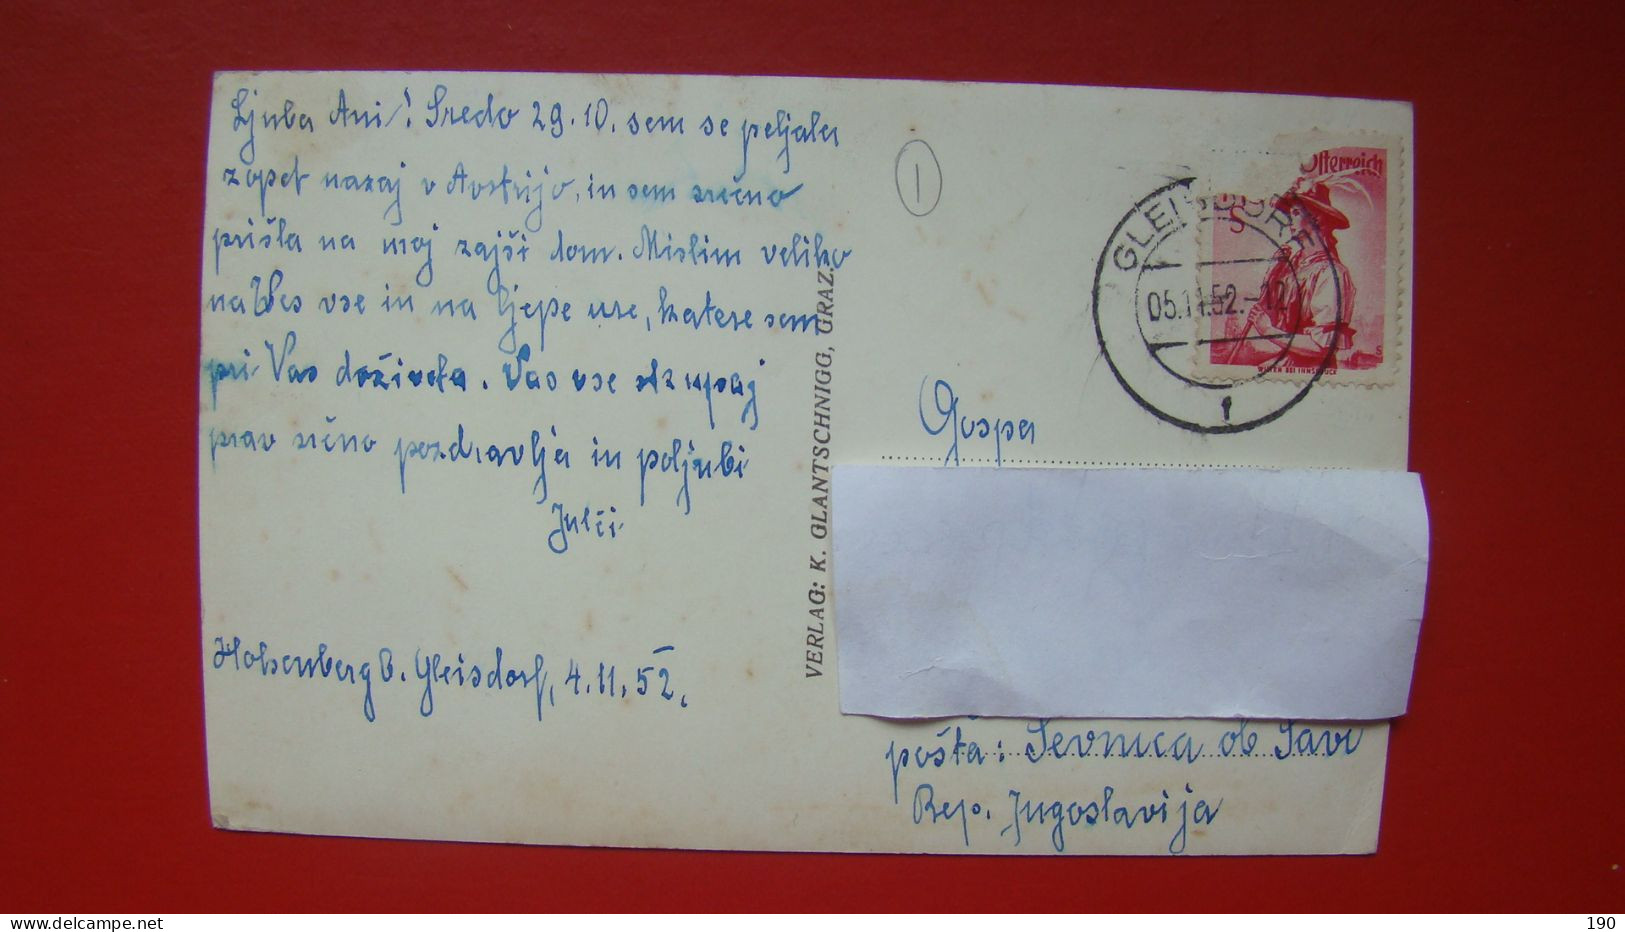 Ljuba Ani! Sredo 29.10. sem se peljala
zopet nazaj v Avstrijo, in sem srečno
prišla na moj zajši dom. Mislim veliko
na Vas vse in na ljepe ure, katere sem
pri Vas doživela. Vas vse skupaj
prav srčno pozdravlja in poljubi
Julči
Hohenberg b. Gleisdorf, 4.11.52.
VERLAG: K. GLANTSCHNIGG, GRAZ.
1
Österreich
S
WILTEN BEI INNSBRUCK
GLEISDORF
05.11.52.-12
1
Gospa
pošta: Sevnica ob Savi
Rep. Jugoslavija
190